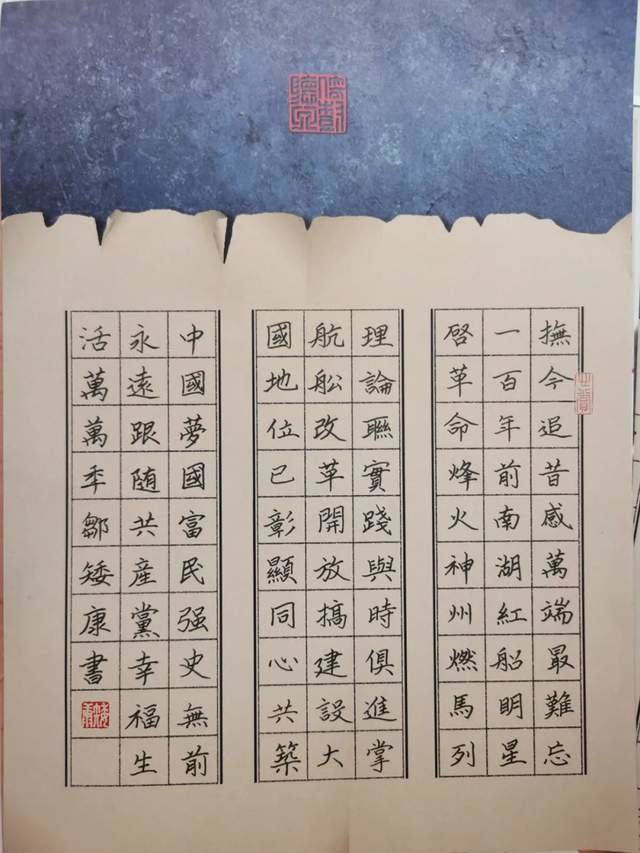 撫今追昔感萬端最難忘
一百年前南湖紅船明星
啓革命烽火神州燃馬列
理論聯實踐與時俱進掌
航船改革開放搞建設大
國地位已彰顯同心共築
中國夢國富民强史無前
永遠跟随共產黨幸福生
活萬萬年鄒矮康書